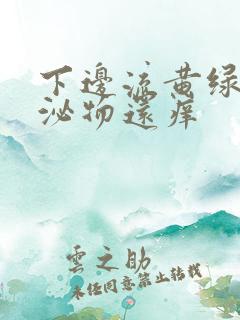 下邊流黄绿
泌物還痒
雲之助
未经同意禁止转载